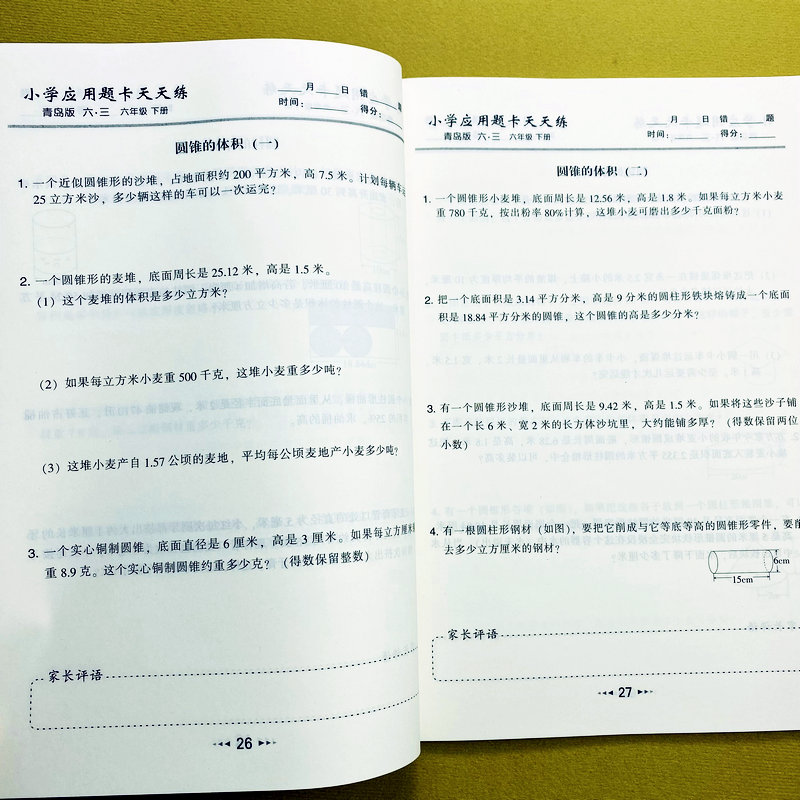 小学应用题卡天天练
青岛版 六·三 六年级 下册
____月____日 错____题
时间：______ 得分：______
圆锥的体积（一）
1. 一个近似圆锥形的沙堆，占地面积约 200 平方米，高 7.5 米。计划每辆车运
25 立方米沙，多少辆这样的车可以一次运完？
2. 一个圆锥形的麦堆，底面周长是 25.12 米，高是 1.5 米。
（1）这个麦堆的体积是多少立方米？
（2）如果每立方米小麦重 500 千克，这堆小麦重多少吨？
（3）这堆小麦产自 1.57 公顷的麦地，平均每公顷麦地产小麦多少吨？
3. 一个实心铜制圆锥，底面直径是 6 厘米，高是 3 厘米。如果每立方厘米
重 8.9 克。这个实心铜制圆锥约重多少克？（得数保留整数）
家长评语
26
小学应用题卡天天练
青岛版 六·三 六年级 下册
____月____日 错____题
时间：______ 得分：______
圆锥的体积（二）
1. 一个圆锥形小麦堆，底面周长是 12.56 米，高是 1.8 米。如果每立方米小麦
重 780 千克，按出粉率 80%计算，这堆小麦可磨出多少千克面粉？
2. 把一个底面积是 3.14 平方分米，高是 9 分米的圆柱形铁块熔铸成一个底面
积是 18.84 平方分米的圆锥，这个圆锥的高是多少分米？
3. 有一个圆锥形沙堆，底面周长是 9.42 米，高是 1.5 米。如果将这些沙子铺
在一个长 6 米，宽 2 米的长方体沙坑里，大约能铺多厚？（得数保留两位
小数）
4. 有一根圆柱形钢材（如图），要把它削成与它等底等高的圆锥形零件，要削
去多少立方厘米的钢材？
6cm
15cm
家长评语
27